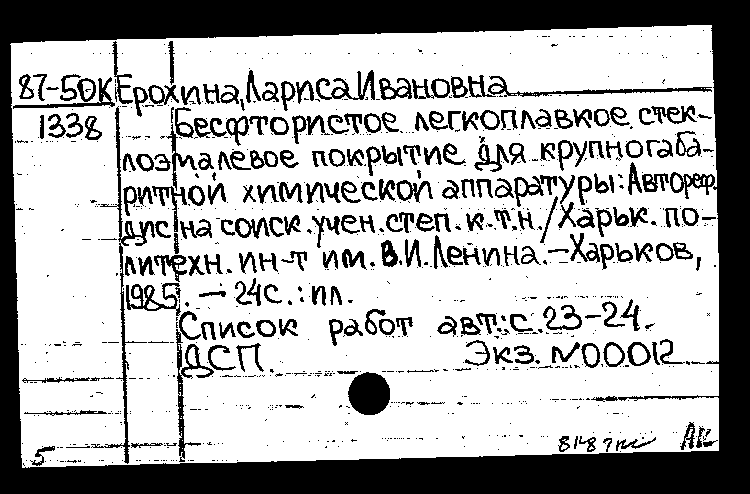 87-50К Ерохина, Лариса Ивановна
1338 Бесфтористое легкоплавкое стек-
лоэмалевое покрытие для крупногаба-
ритной химической аппаратуры: Автореф.
дис на соиск. учен. степ. к.т.н. / Харьк. по-
литехн. ин-т им. В.И. Ленина. — Харьков,
1985. — 24с. : ил.
Список работ авт.: с. 23-24.
ДСП. Экз. №00012
5 АК